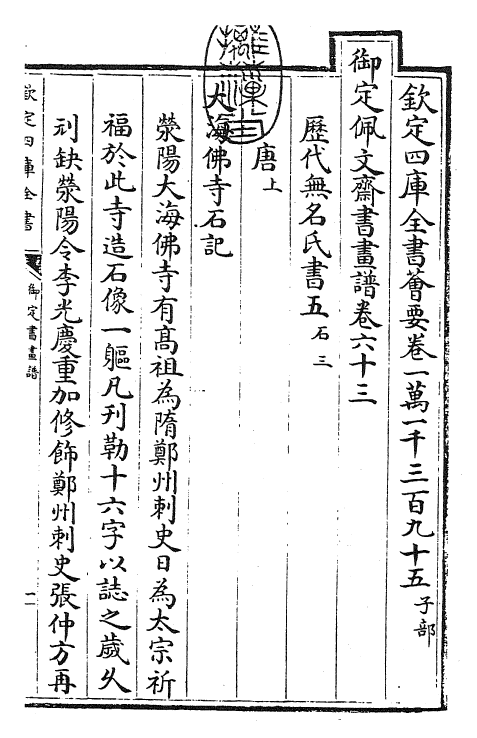 欽定四庫全書薈要卷一萬一千三百九十五 子部
御定佩文齋書畫譜卷六十三
歷代無名氏書五 石三
唐上
大海佛寺石記
滎陽大海佛寺有髙祖為隋鄭州刺史日為太宗祈
福於此寺造石像一軀凡刋勒十六字以誌之歲久
刓缺滎陽令李光慶重加修飾鄭州刺史張仲方再
欽定四庫全書
御定書畫譜
一